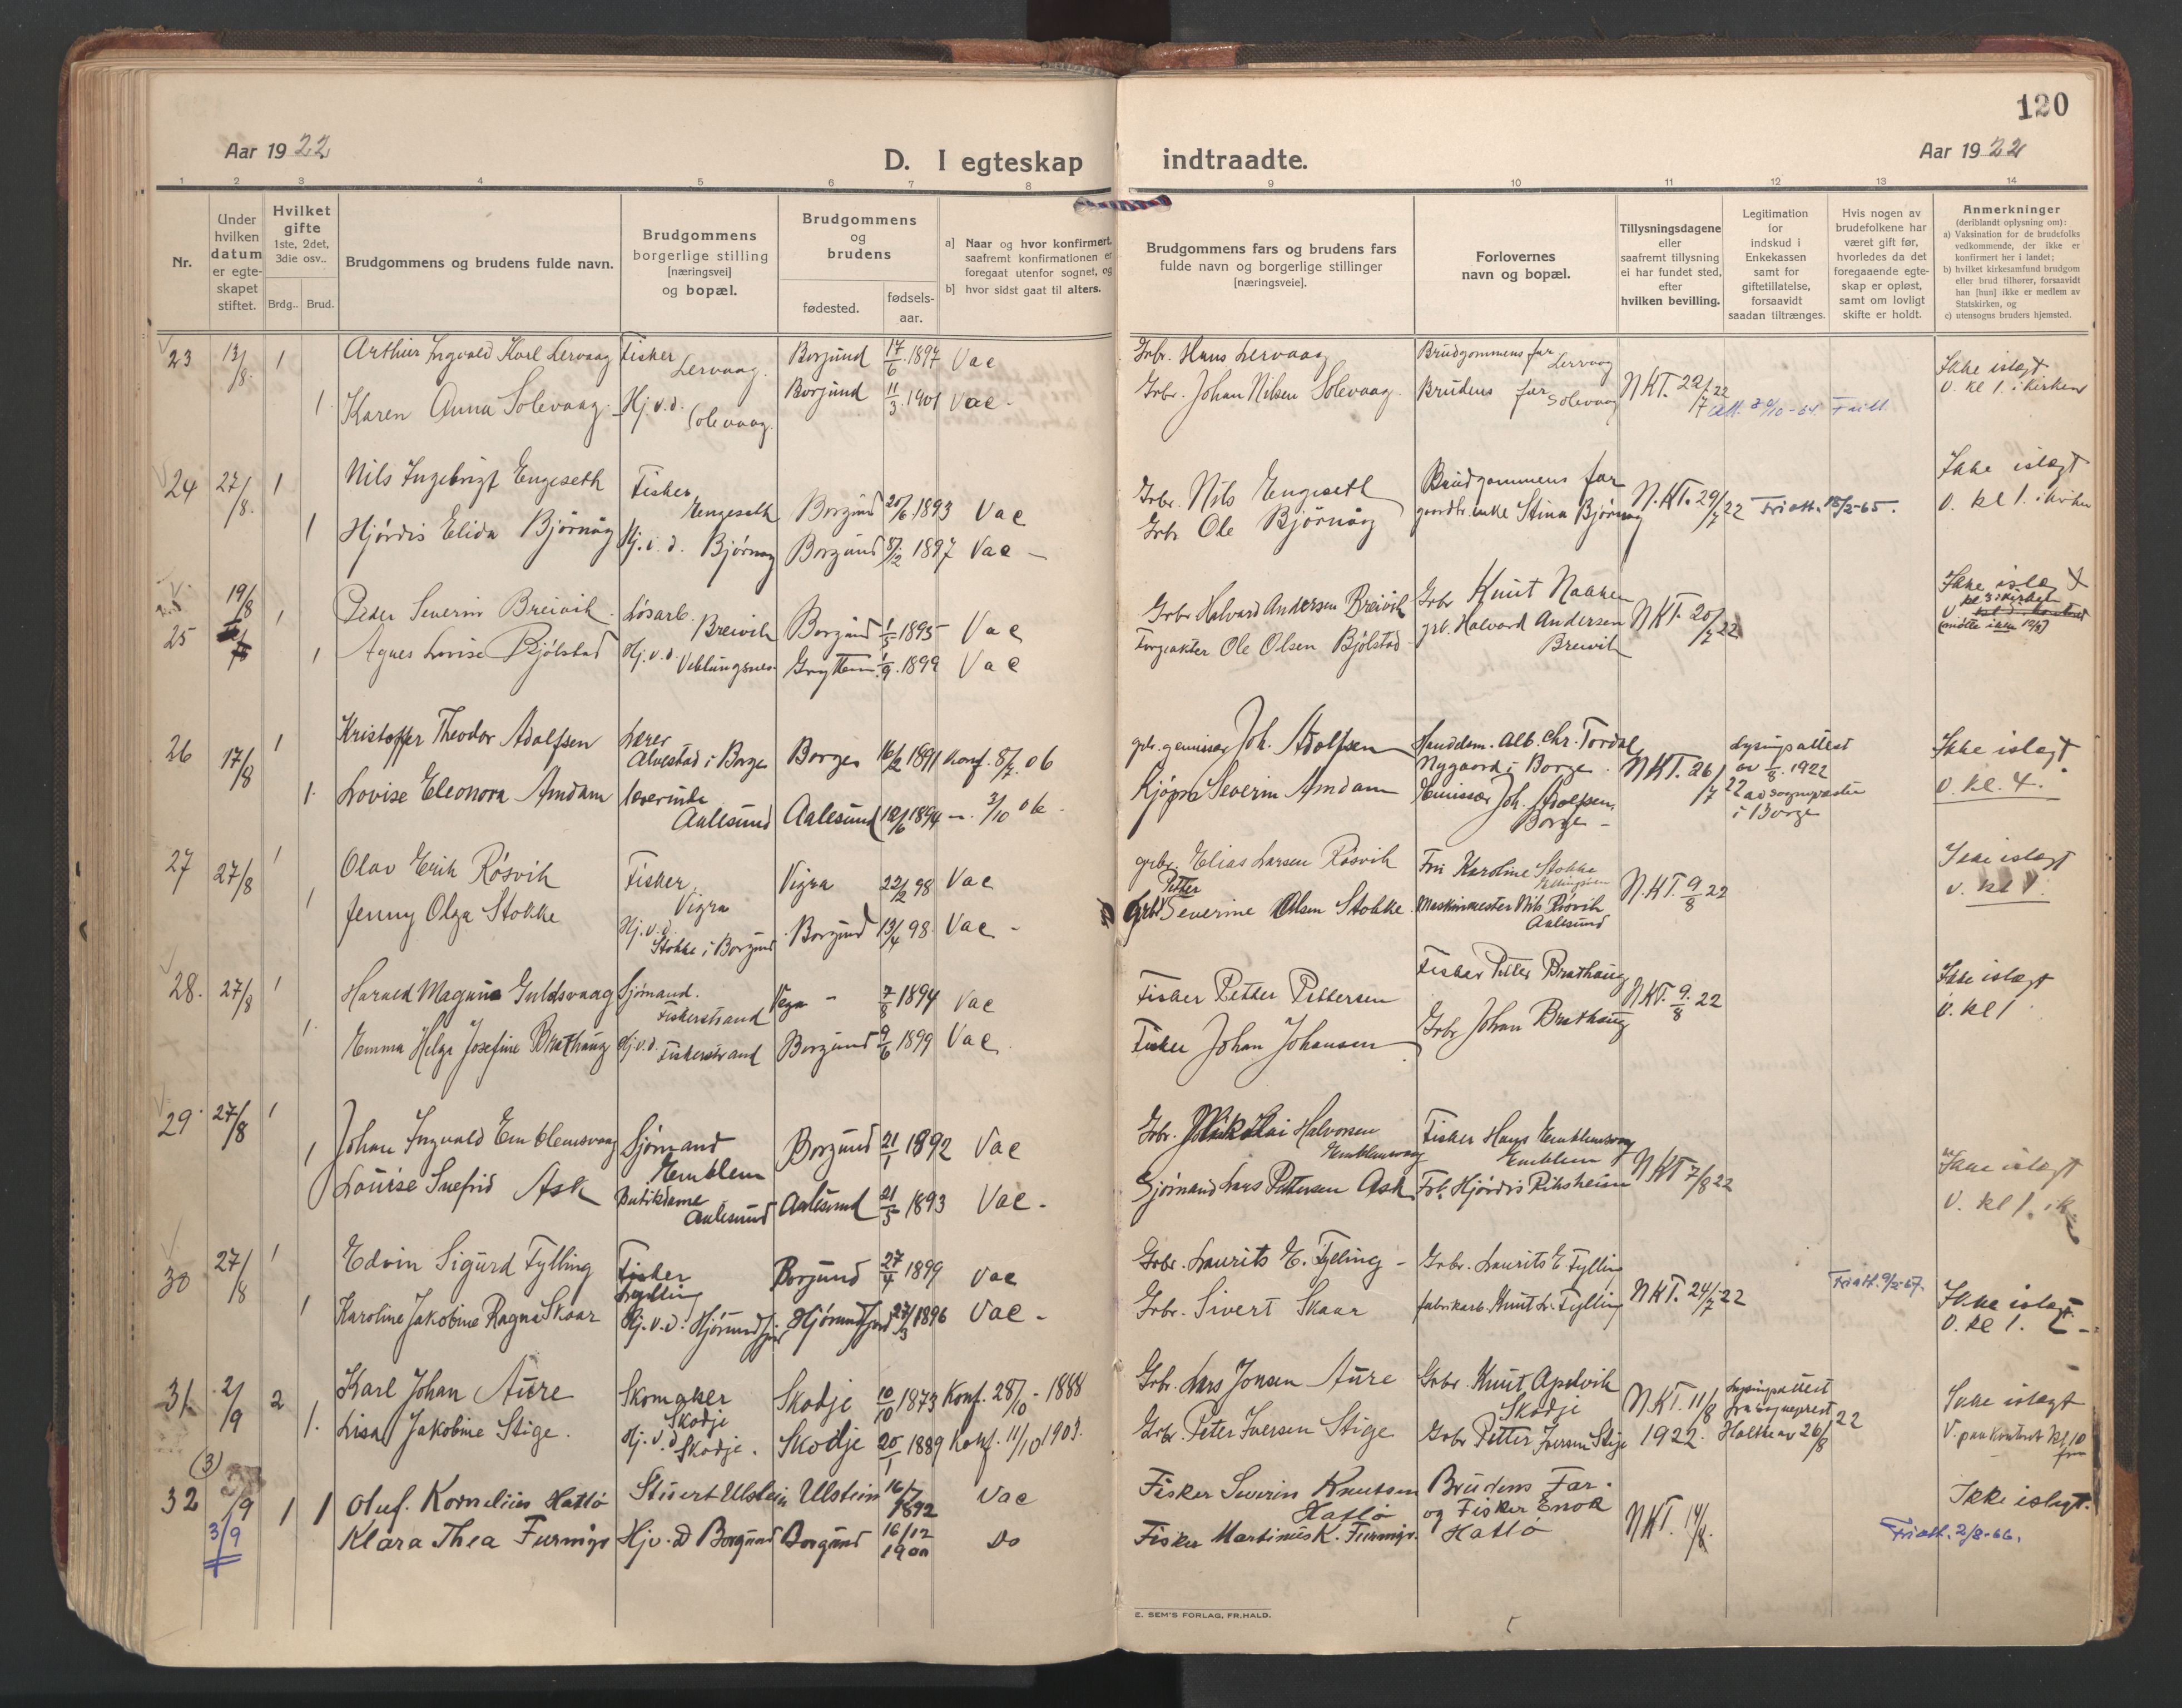 120
Aar 1922
D. I egteskap indtraadte.
Aar 1922
1 2 3 4 5 6 7 8 9 10 11 12 13 14
Nr.
Under hvilken datum er egte- skapet stiftet.
Hvilket gifte 1ste, 2det, 3die osv..
Brdg.. Brud.
Brudgommens og brudens fulde navn.
Brudgommens borgerlige stilling [næringsvei] og bopæl.
Brudgommens og brudens
fødested.
fødsels- aar.
a] Naar og hvor konfirmert, saafremt konfirmationen er foregaat utenfor sognet, og
b] hvor sidst gaat til alters.
Brudgommens fars og brudens fars fulde navn og borgerlige stillinger [næringsveie].
Forlovernes navn og bopæl.
Tillysningsdagene eller saafremt tillysning ei har fundet sted, efter hvilken bevilling.
Legitimation for indskud i Enkekassen samt for giftetillatelse, forsaavidt saadan tiltrænges.
Hvis nogen av brudefolkene har været gift før, hvorledes da det foregaaende egte- skap er opløst, samt om lovligt skifte er holdt.
Anmerkninger (deriblandt oplysning om):
a) Vaksination for de brudefolks vedkommende, der ikke er konfirmert her i landet;
b) hvilket kirkesamfund brudgom eller brud tilhører, forsaavidt han [hun] ikke er medlem av Statskirken, og
c) utensogns bruders hjemsted.
23 13/8. 1 Arthur Ingvald Karl Lervaag Fisker Lervaag. Borgund 17/6 1897 Vac Grbr. Hans Lervaag Brudgommens far Lervaag Ikke islægt
1. Karen Anna Solevaag. Hj.v.d. Solevaag. Borgund 11/3 1901 Vac - Grbr. Johan Nilsen Solevaag. Brudens far Solevaag NKT. 22/7 22 V. kl 1. i kirken
24 27/8. 1 Nils Ingebrigt Engeseth Fisker Engeseth Borgund 20/6 1893 Vac Grbr. Nils Engeseth Brudgommens far N.KT. 29/7 22 Friatt. 18/2-65. Ikke islægt
1 Hjørdis Elida Bjørnøy Hj.v.d. Bjørnøy Borgund 1897 Vac - Grbr Ole Bjørnøy gaardbr. enke Stina Bjørnøy V. kl 1. i kirken
25 19/8 1 Peder Severin Breivik Løsarb. Breivik Borgund 1/5 1895 Vac Grbr Halvard Andersen Breivik Grbr Knut Naken NKT. 20/7 22 Ikke islægt
1 Agnes Lovise Bjølstad Hj.v.d. Veblungsnes Grytten 1/9. 1899 Vac Ole Olsen Bjølstad grb. Halvard Andersen Breivik
26 17/8 1 Kristoffer Theodor Adolfsen Lærer Alvestad i Borge Borge 16/2 1891 Konf. 8/7. 06 Joh. Adolfsen Handelsm. Alb. Chr. Tordal Nygaard i Borge. NKT. 26/7 22 Lysingsattest av 1/8. 1922 Ikke islægt
1. Lovise Eleonora Amdam lærerinde Aalesund Aalesund 12/6 1894 Kjøpm Severin Amdam Emissær Joh. Adolfsen, Borge - i Borge V. kl. 4.
27 27/8 1 Olav Erik Røsvik Fisker Vigra Vigra 22/2 98 Vac grbr. Elias Larsen Røsvik Fru Karoline Stokke N.KT. 9/8 22 Ikke islægt
1 Jenny Olga Stokke Hj.v.d. Stokke i Borgund Borgund 13/4 98. Vac - Grbr Petter Severine Olsen Stokke. Maskinmester Nils Røsvik Aalesund V. kl 1.
28. 27/8 1 Harald Magnus Guldsvaag Sjømand. Fiskerstrand Vega - 7/8 1894 Vac Fisker Petter Pettersen Fisker Petter Brathaug NKT. 9/8. 22 Ikke islægt
1. Emma Helga Josefine Brathaug Hj.v.d. Fiskerstrand Borgund 9/6 1899 Vac. Fisker Johan Johansen Grbr Johan Brathaug V. kl 1
29 27/8 1 Johan Ingvald Emblemsvaag Sjømand Emblem Borgund 21/1 1892 Vac Grbr. Nikolai Halvorsen Emblemsvaag Fisker Hans Emblemsvaag Emblem NKT 7/8 22 Ikke islægt
1 Louise Snefrid Ask Butikdame Aalesund Aalesund 21/5 1893 Vac - Sjømand Lars Pettersen Ask Frk. Hjørdis Riksheim V. kl 1. i k
30 27/8 1 Edvin Sigurd Fylling Fisker Fylling Borgund 27/4 1899 Vac Grbr. Laurits E. Fylling - Grbr. Laurits E Fylling NKT. 24/7 22 Friatt. 9/2-67. Ikke islægt
1 Karoline Jakobine Ragna Skaar Hj.v.d. Hjørundfjord Hjørundfjord 27/3 1896 Vac - Grbr. Sivert Skaar fabrikarb. Knut L. Fylling V. kl 1.
31 2/9 2 Karl Johan Aure Skomaker Skodje Skodje 10/10 1873 Konf. 28/10 - 1888 Grbr. Lars Jonsen Aure Grbr. Knut Apalvik Skodje NKT. 11/8 1922. Lysingsattest fra sogneprest 26/8 22 Ikke islægt
1. Lisa Jakobine Stige. Hj.v.d Skodje. Skodje 20/1 1889 Konf. 11/10 1903. Grbr. Peter Iversen Stige Grbr Petter Iversen Stige V. paa kontoret kl 10 fm
(3)
32 3/9 1 1 Oluf. Kornelius Hatlø Ulstein Ulstein 16/7 1892 Vac Fisker Severin Knutsen Hatlø Brudens Far. og Fisker Enok Hatlø NKT. 14/8. Ikke islegt.
3/9 Klara Thea Furmyr Hjv.D Borgund Borgund 16/12 1900 Do Fisker Martinus K. Furmyr. Friatt. 2/8-66.
E. SEM'S FORLAG, FR.HALD.